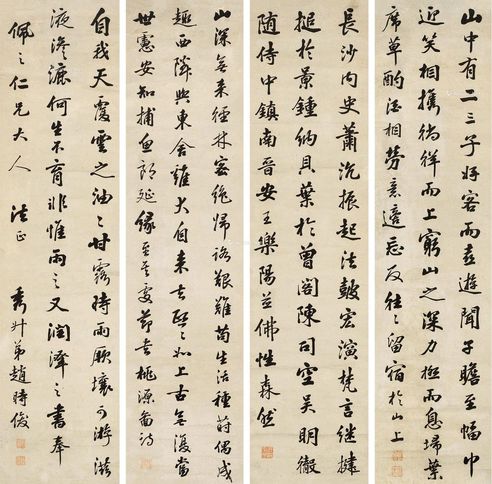 山中有二三子好客而喜遊聞子瞻至幅巾
迎笑相攜徜徉而上窮山之深力極而息埽葉
席草酌酒相勞意適忘反往々留宿於山上
長沙內史蕭沇振起法鼓宏演梵言繼揵
搥於景鍾納貝葉於曾閣陳司空吳明徹
隨侍中鎮南晉安王樂陽並佛性森然
山深無来徑林密絕歸路艱難苟生活種蒔偶成
趣西隣與東舍雞犬自来去熙々如上古無復當
世憲安知捕魚郎延緣至其處節書桃源圖詩
自我天覆雲之油々甘露時雨厥壤可游滋
液滲漉何生不育非惟雨之又潤澤之書奉
佩之仁兄大人 法正
秀升弟趙時俊